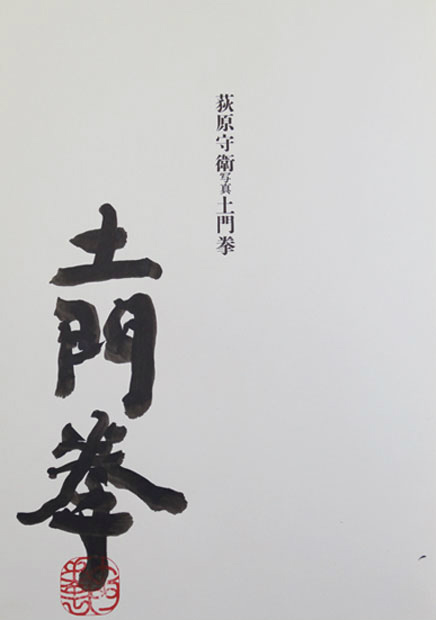 荻原守衛写真土門拳
土門拳